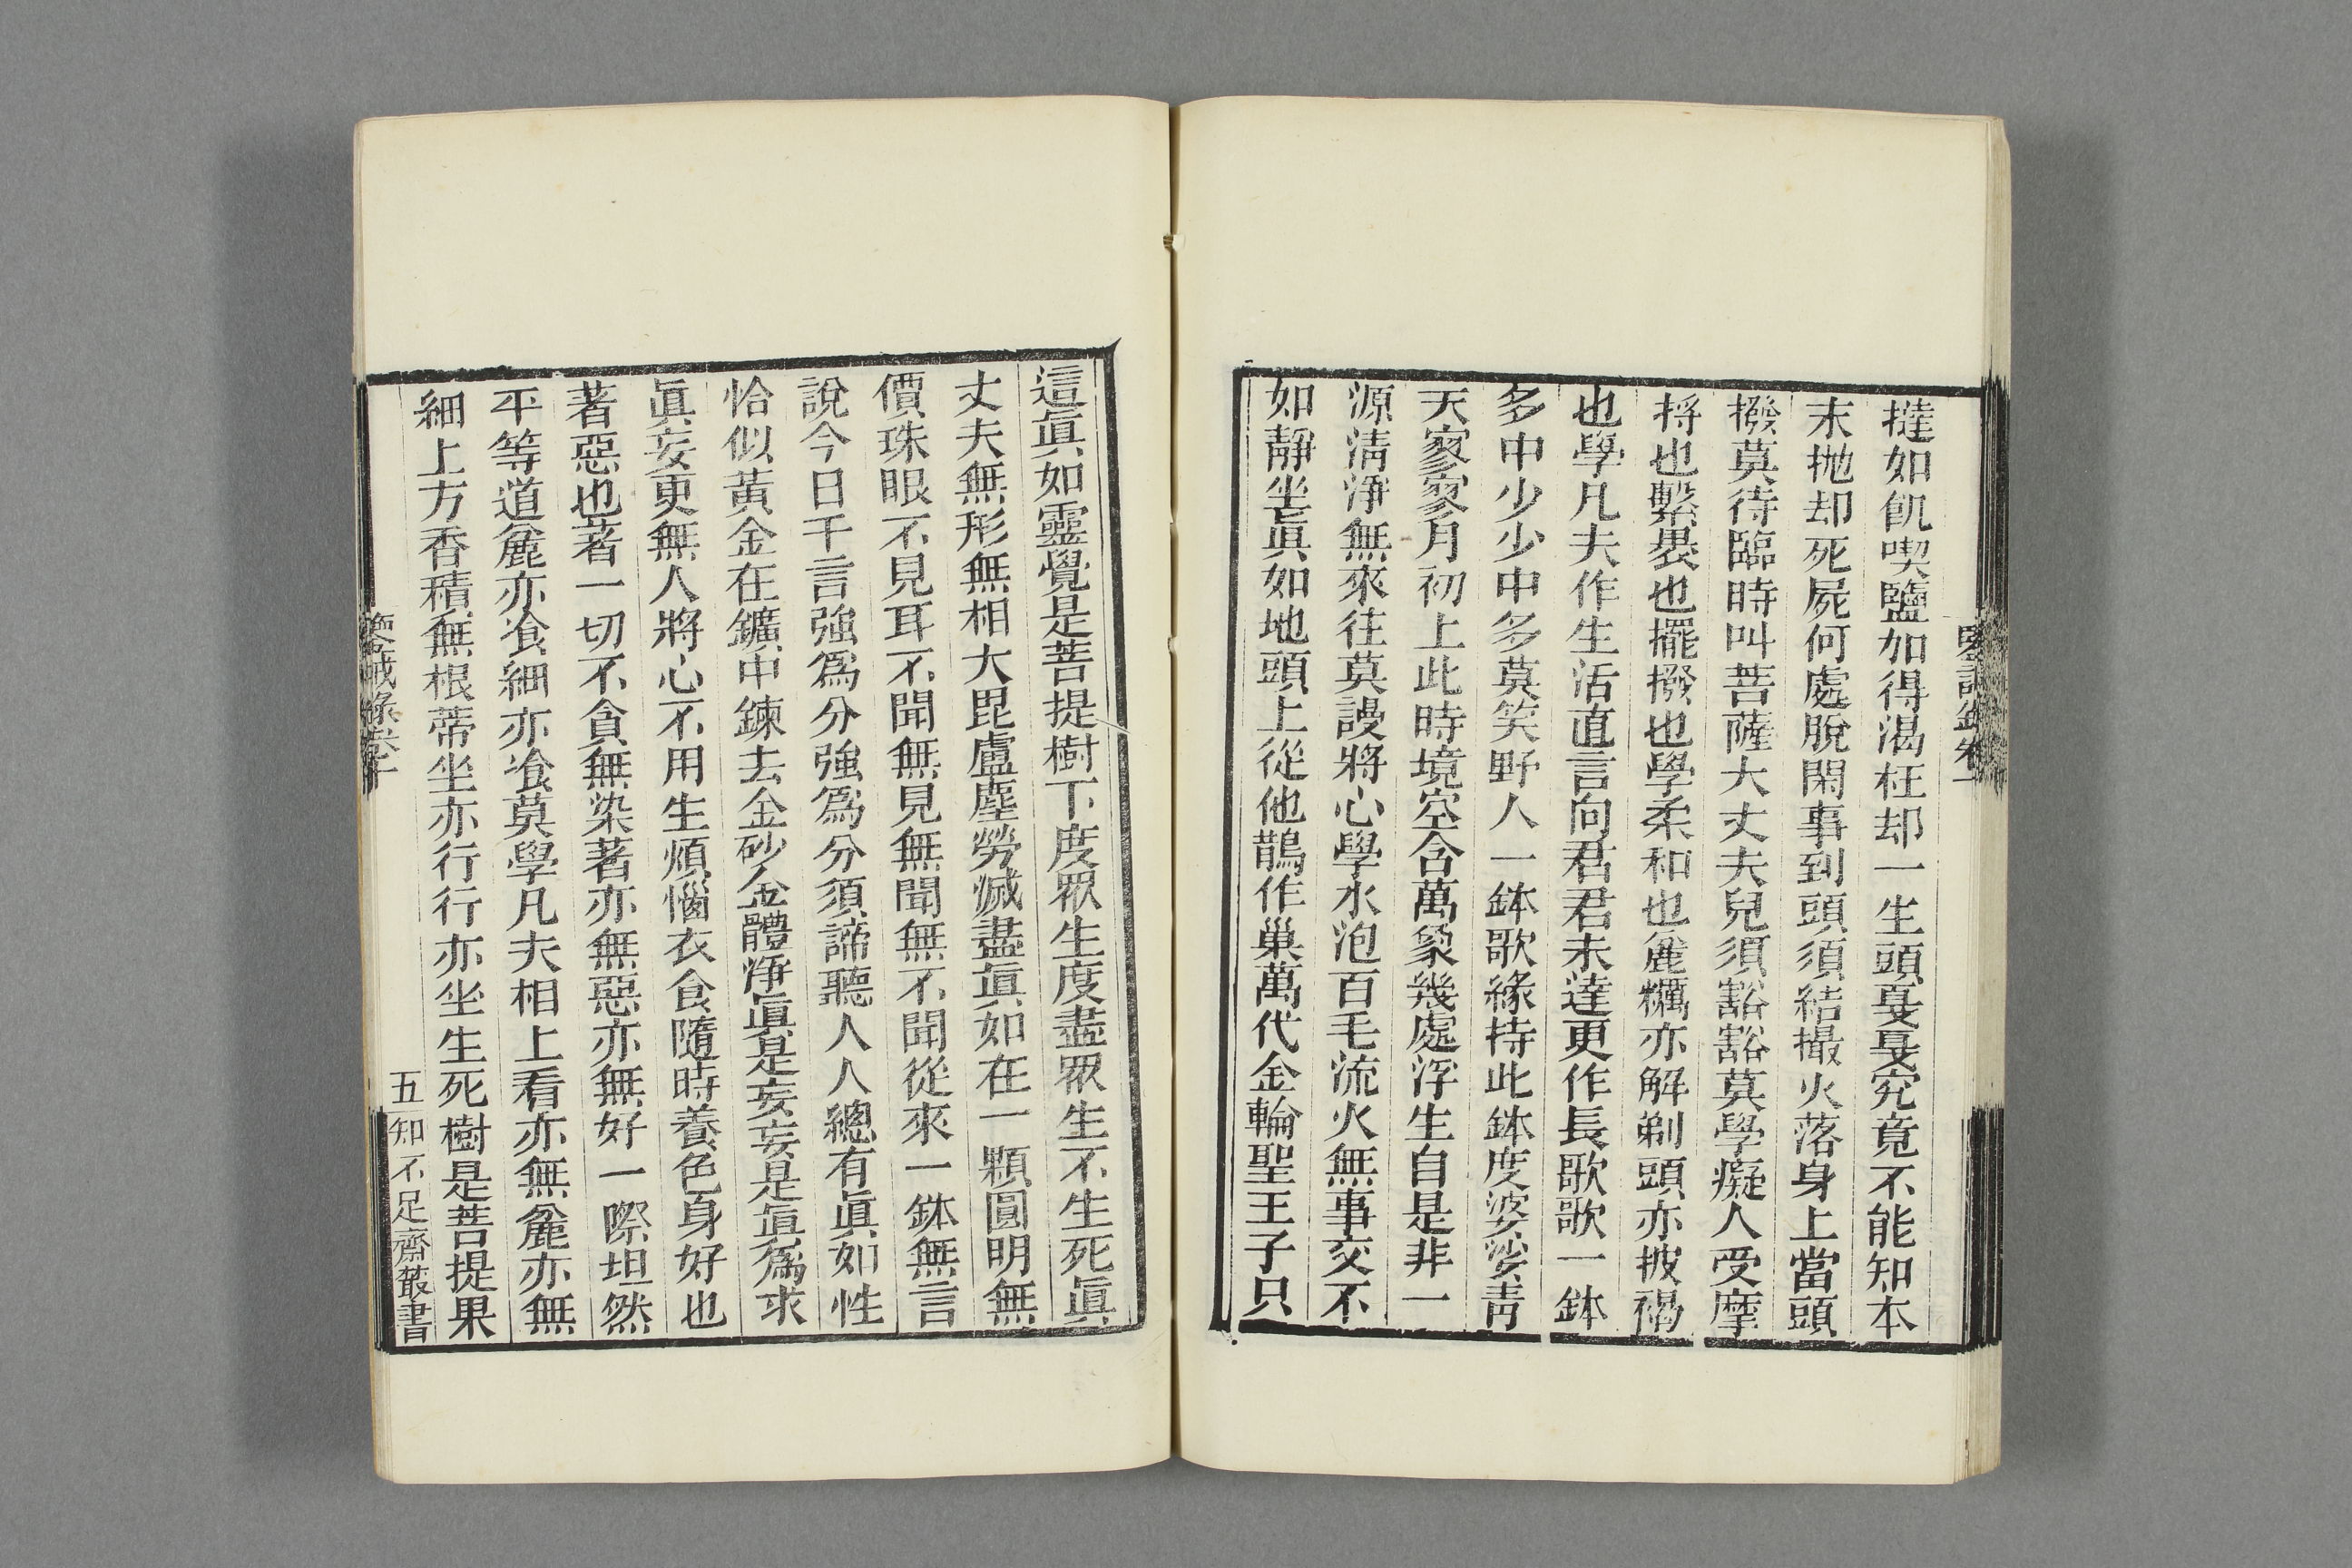 撻如飢喫鹽加得渴枉却一生頭戛戛究竟不能知本
末抛却死屍何處脫閑事到頭須結撮火落身上當頭
撥莫待臨時叫菩薩大丈夫兒須豁豁莫學癡人受摩
捋也繫褁也擺撥也學柔和也麄糲亦解剃頭亦披褐
也學凡夫作生活直言向君君未達更作長歌歌一鉢
多中少少中多莫笑野人一鉢歌緣持此鉢度婆娑靑
天寥寥月初上此時境空含萬象幾處浮生自是非一
源淸淨無來往莫謾將心學水泡百毛流火無事交不
如靜坐眞如地頭上從他鵲作巢萬代金輪聖王子只
這眞如靈覺是菩提樹下度眾生度盡眾生不生死眞
丈夫無形無相大毘盧塵勞滅盡眞如在一顆圓明無
價珠眼不見耳不聞無見無聞無不聞從來一鉢無言
說今日千言強爲分強爲分須諦聽人人總有眞如性
恰似黃金在鑛中鍊去金砂金體淨眞是妄妄是眞爲求
眞妄更無人將心不用生煩惱衣食隨時養色身好也
著惡也著一切不貪無染著亦無惡亦無好一際坦然
平等道麄亦飡細亦飡莫學凡夫相上看亦無麄亦無
細上方香積無根蒂坐亦行行亦坐生死樹是菩提果
鑒誡錄卷十
五
知不足齋叢書